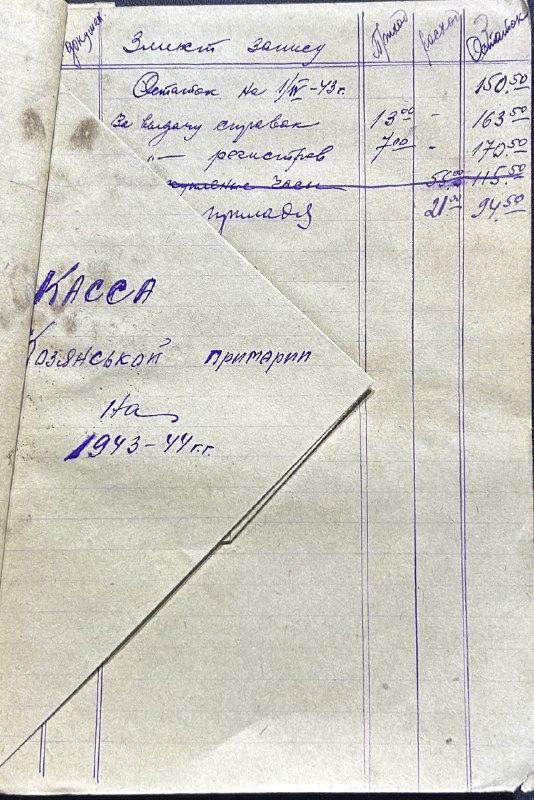 Змист запису Приход расход Остаток
Остаток на 1/IV-43 г. 150.50
За выдачу справок 13 00 - 163.50
-"- регистров 7 00 - 170.50
55 00 115.50
21 00 94.50
КАССА
Козянськой примарии
На
1943-44 г.г.